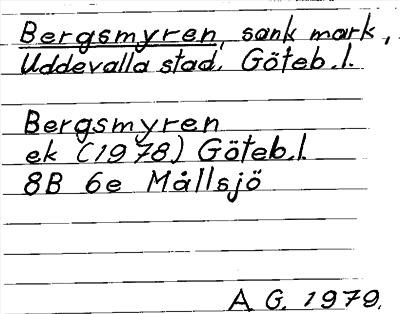 Bergsmyren, sank mark,
Uddevalla stad. Göteb.l.
Bergsmyren
ek (1978) Göteb.l.
8B 6e Mållsjö
A G. 1979.